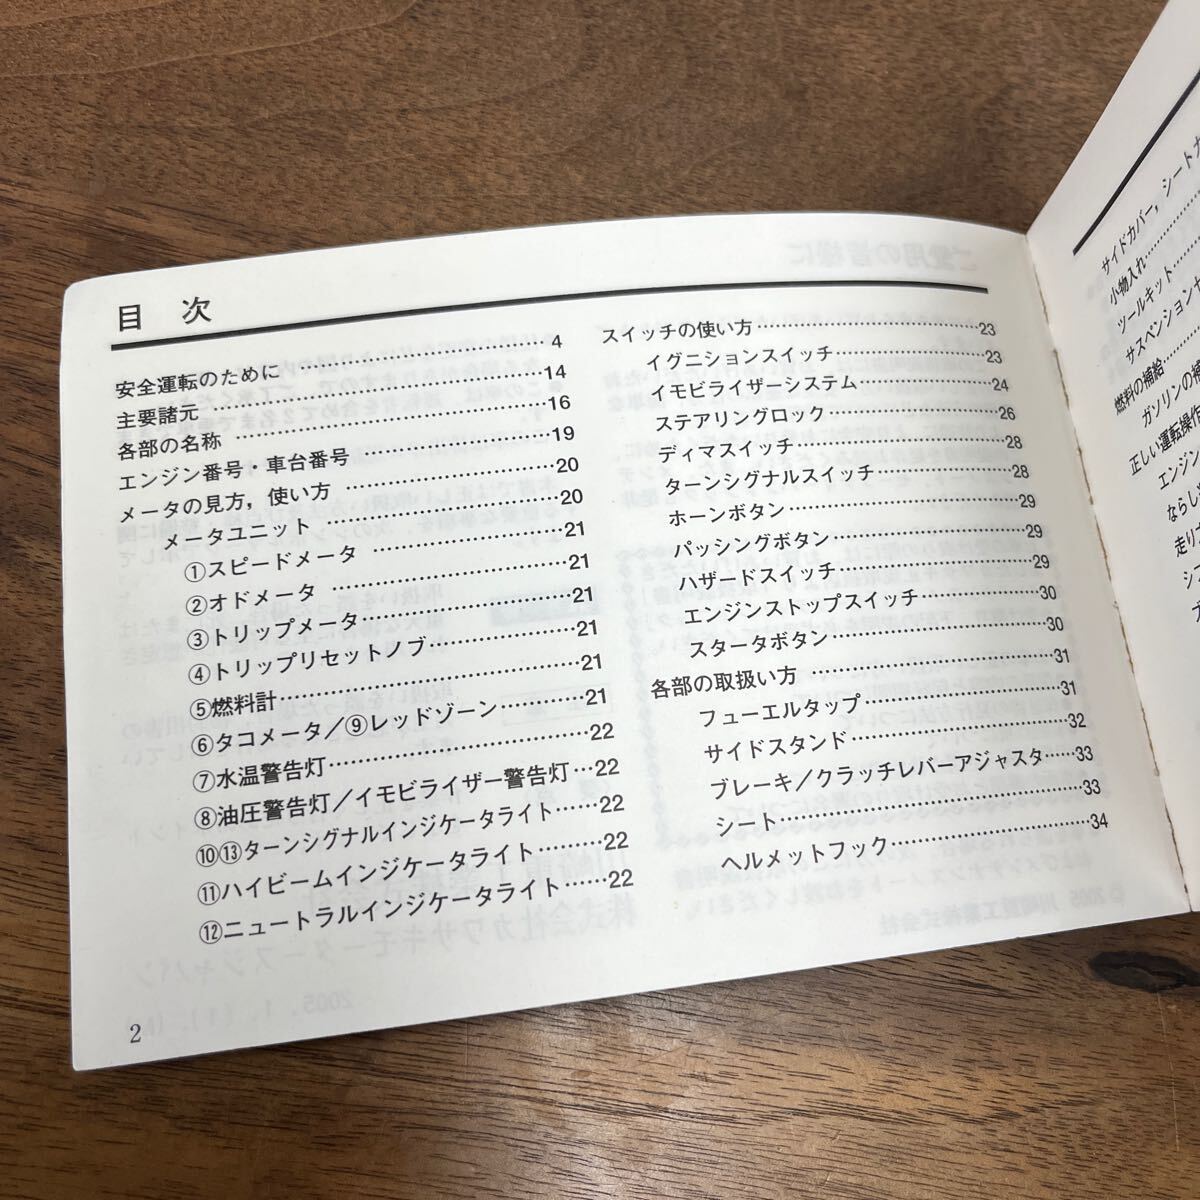 目　次
安全運転のために ……………………… 4
主要諸元 ……………………………… 14
各部の名称 …………………………… 16
エンジン番号・車台番号 …………… 19
メータの見方，使い方 ……………… 20
メータユニット ……………………… 20
①スピードメータ …………………… 21
②オドメータ ………………………… 21
③トリップメータ …………………… 21
④トリップリセットノブ …………… 21
⑤燃料計 ……………………………… 21
⑥タコメータ／⑨レッドゾーン …… 21
⑦水温警告灯 ………………………… 22
⑧油圧警告灯／イモビライザー警告灯 … 22
⑩⑬ターンシグナルインジケータライト …… 22
⑪ハイビームインジケータライト …… 22
⑫ニュートラルインジケータライト …… 22
スイッチの使い方 …………………… 23
イグニションスイッチ ……………… 23
イモビライザーシステム …………… 24
ステアリングロック ………………… 26
ディマスイッチ ……………………… 28
ターンシグナルスイッチ …………… 28
ホーンボタン ………………………… 29
パッシングボタン …………………… 29
ハザードスイッチ …………………… 29
エンジンストップスイッチ ………… 30
スタータボタン ……………………… 30
各部の取扱い方 ……………………… 31
フューエルタップ …………………… 31
サイドスタンド ……………………… 32
ブレーキ／クラッチレバーアジャスタ …… 33
シート ………………………………… 33
ヘルメットフック …………………… 34
2
サイドカバー，シート
小物入れ
ツールキット
サスペンション
燃料の補給
ガソリンの補
正しい運転操作
エンジン
ならし
走り